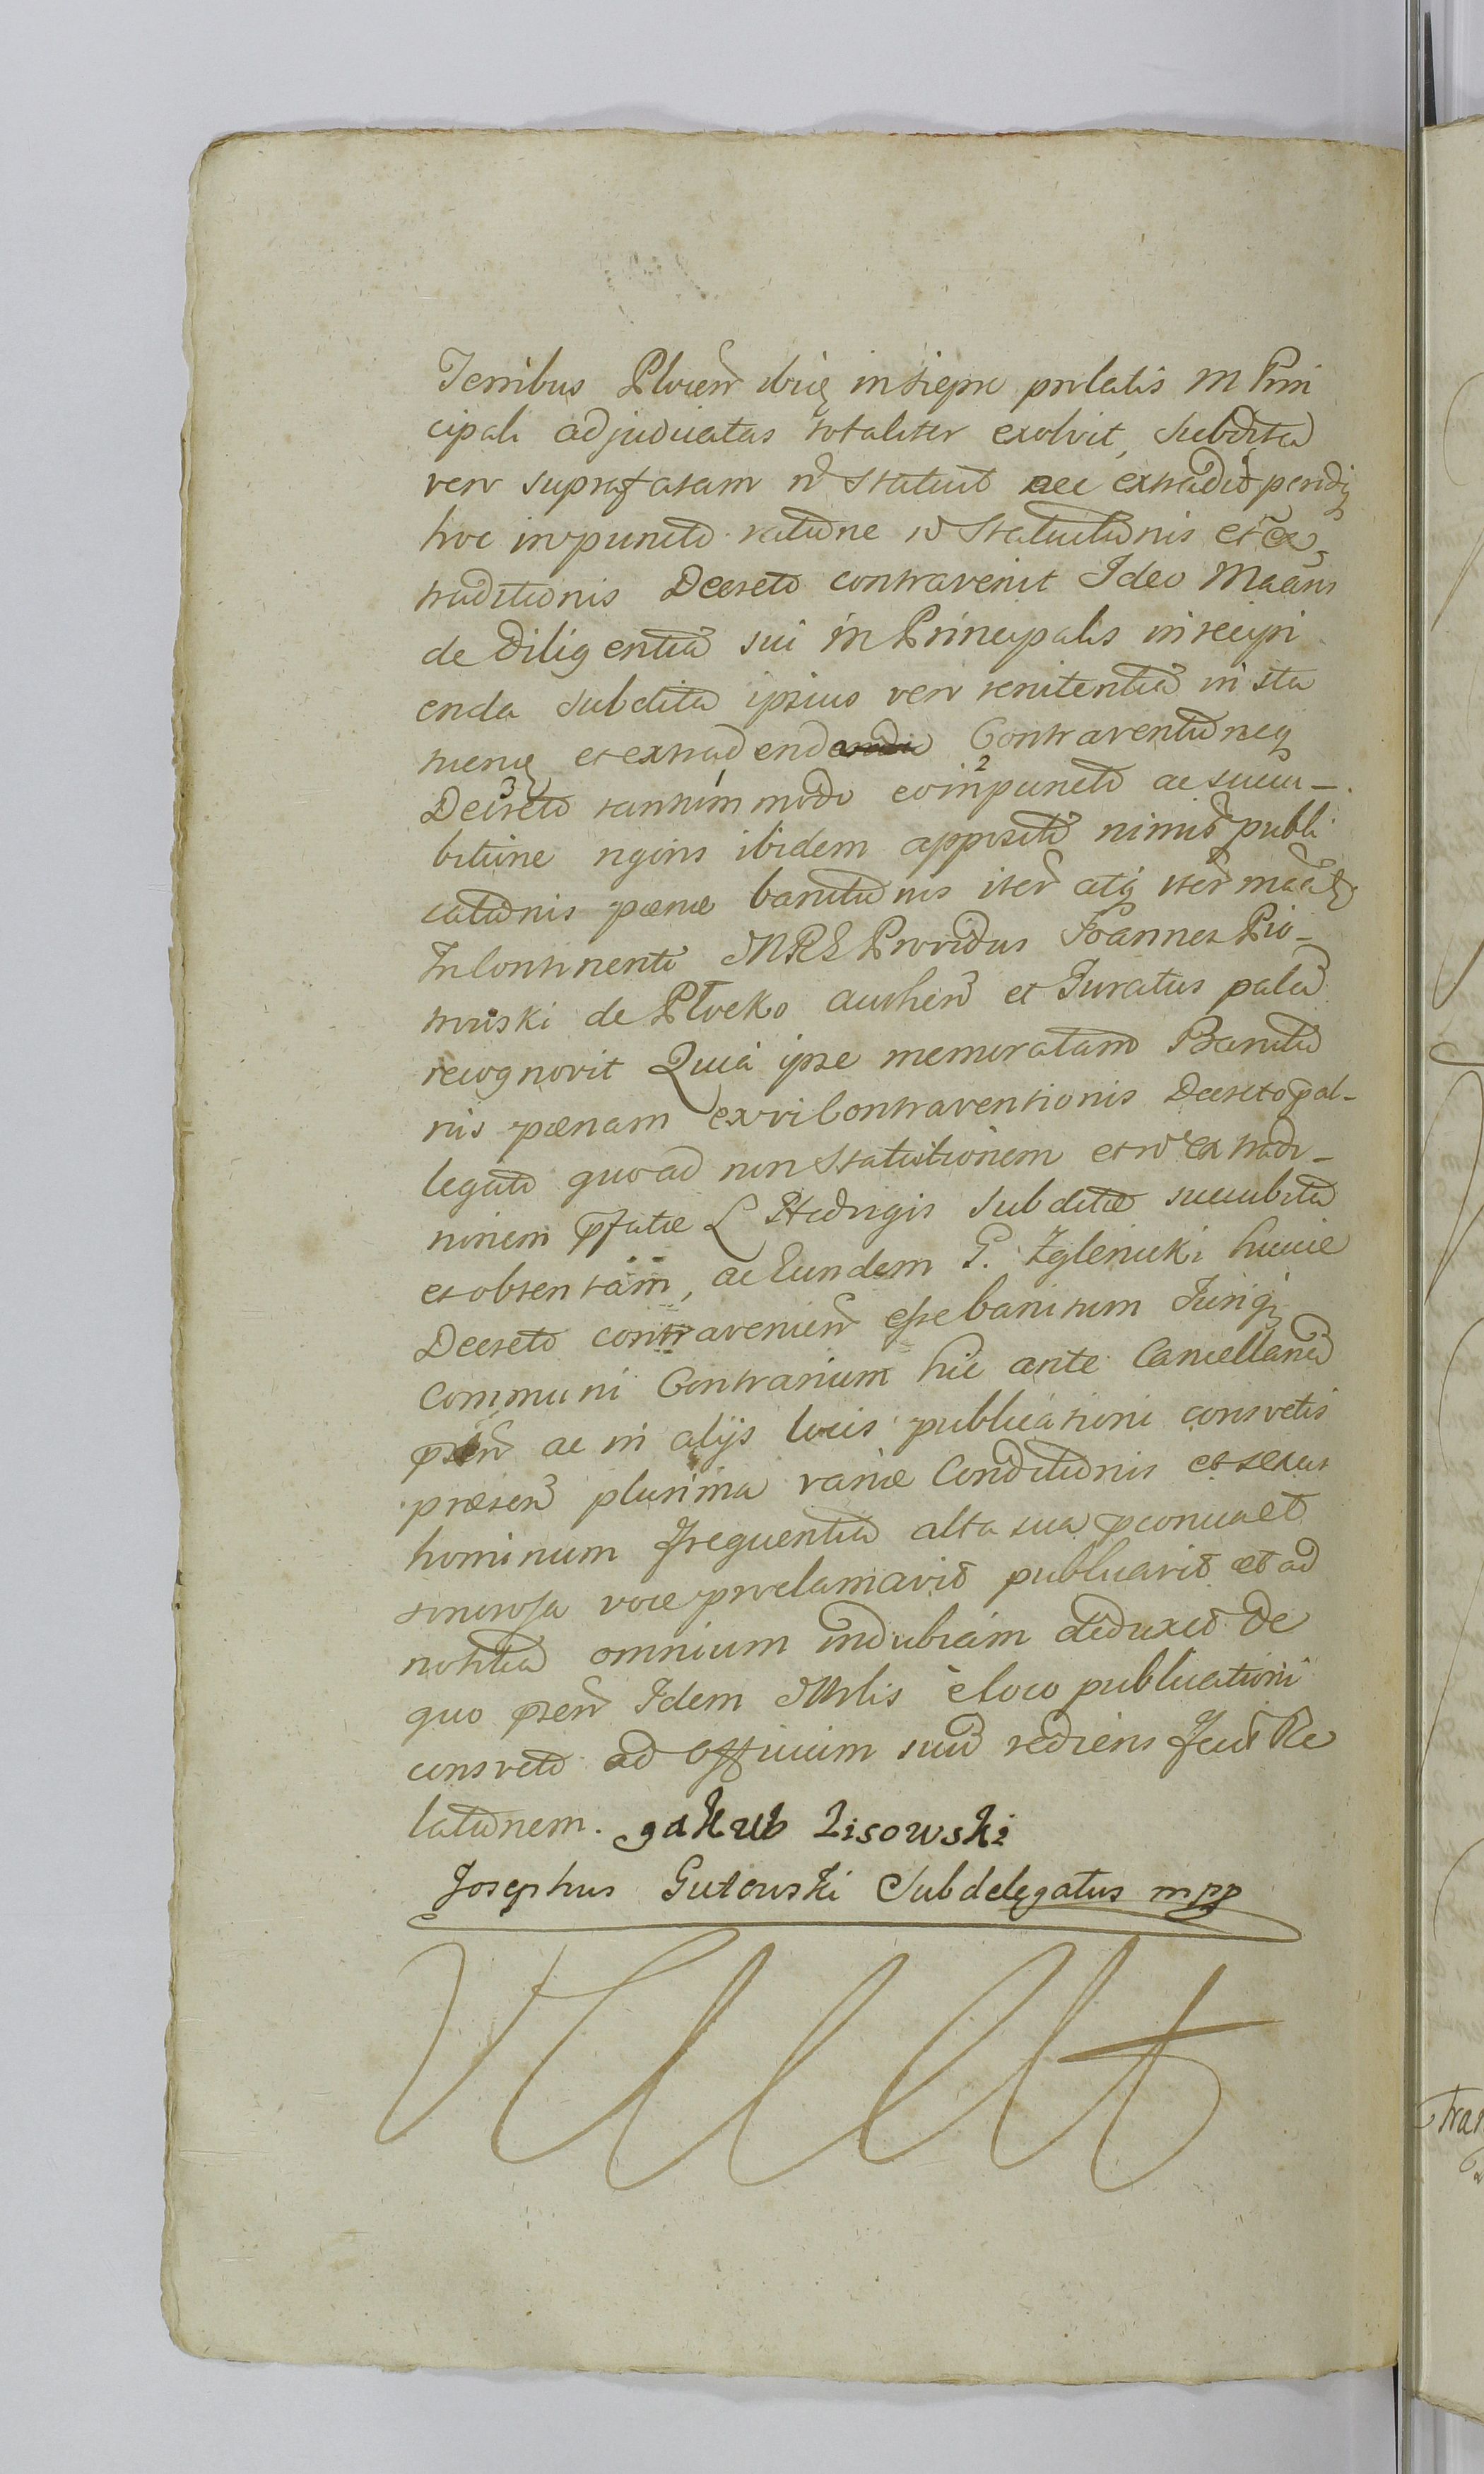 Terribus Plocen ibiq in siepre prolatis M Prin
cipali adjudicatas totaliter exolvit, Subdita
vero suprafatam n Statuit nec extradit periq
hoc in puncto ratione n Statuitionis et ex
traditionis Decreto contravenit Ideo Maans
de diligentia sui M Principalis in recipi
enda Subdita ipsius vero renitentia in sta
tuenq et extradend Contraventioneq
Decreto tantummodo eo in puncto ac succu-
bitione rigoris ibidem appositi nimi publi
cationis pænæ banitionis iter atq iter
In Continenti MRG Providus Joannes Pio-
trowski de Plocko authen et Juratus palam
recognovit Quia ipse memoratam Banitio
nis pænam ex vi Contraventionis Decreto pal-
legato quoad non Statuitionem et n extradi-
tionem pfatæ L Hedvigis Subditæ succubitam
et obtentam, ac Eundem G. Zglenicki huic
Decreto contravenien esse banitum Juriq
communi Contrarium hic ante Cancellariam
psen ac in alijs locis publicationi consvetis
præsen plurima variæ Conditionis et sexus
hominum frequentia alta sua pconica et
sonorosa voce proclamavit publicavit et ad
notitiam omnium indubiam deduxit De
quo psen Idem Mrlis è loco publicationi
consveto ad officium suum rediens fecit Re
lationem. Jakub Lisowski
Josephus Gutowski Subdelegatus mpp